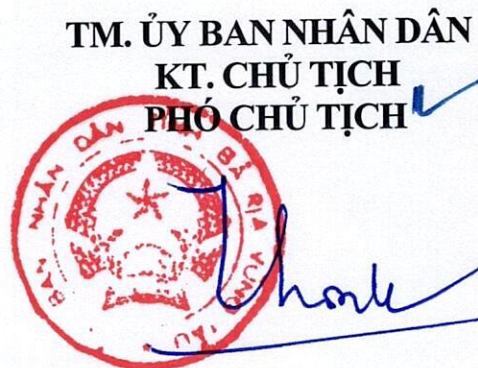 TM. ỦY BAN NHÂN DÂN
KT. CHỦ TỊCH
PHÓ CHỦ TỊCH
BAN NHÂN DÂN TỈNH BÀ RỊA VŨNG TÀU